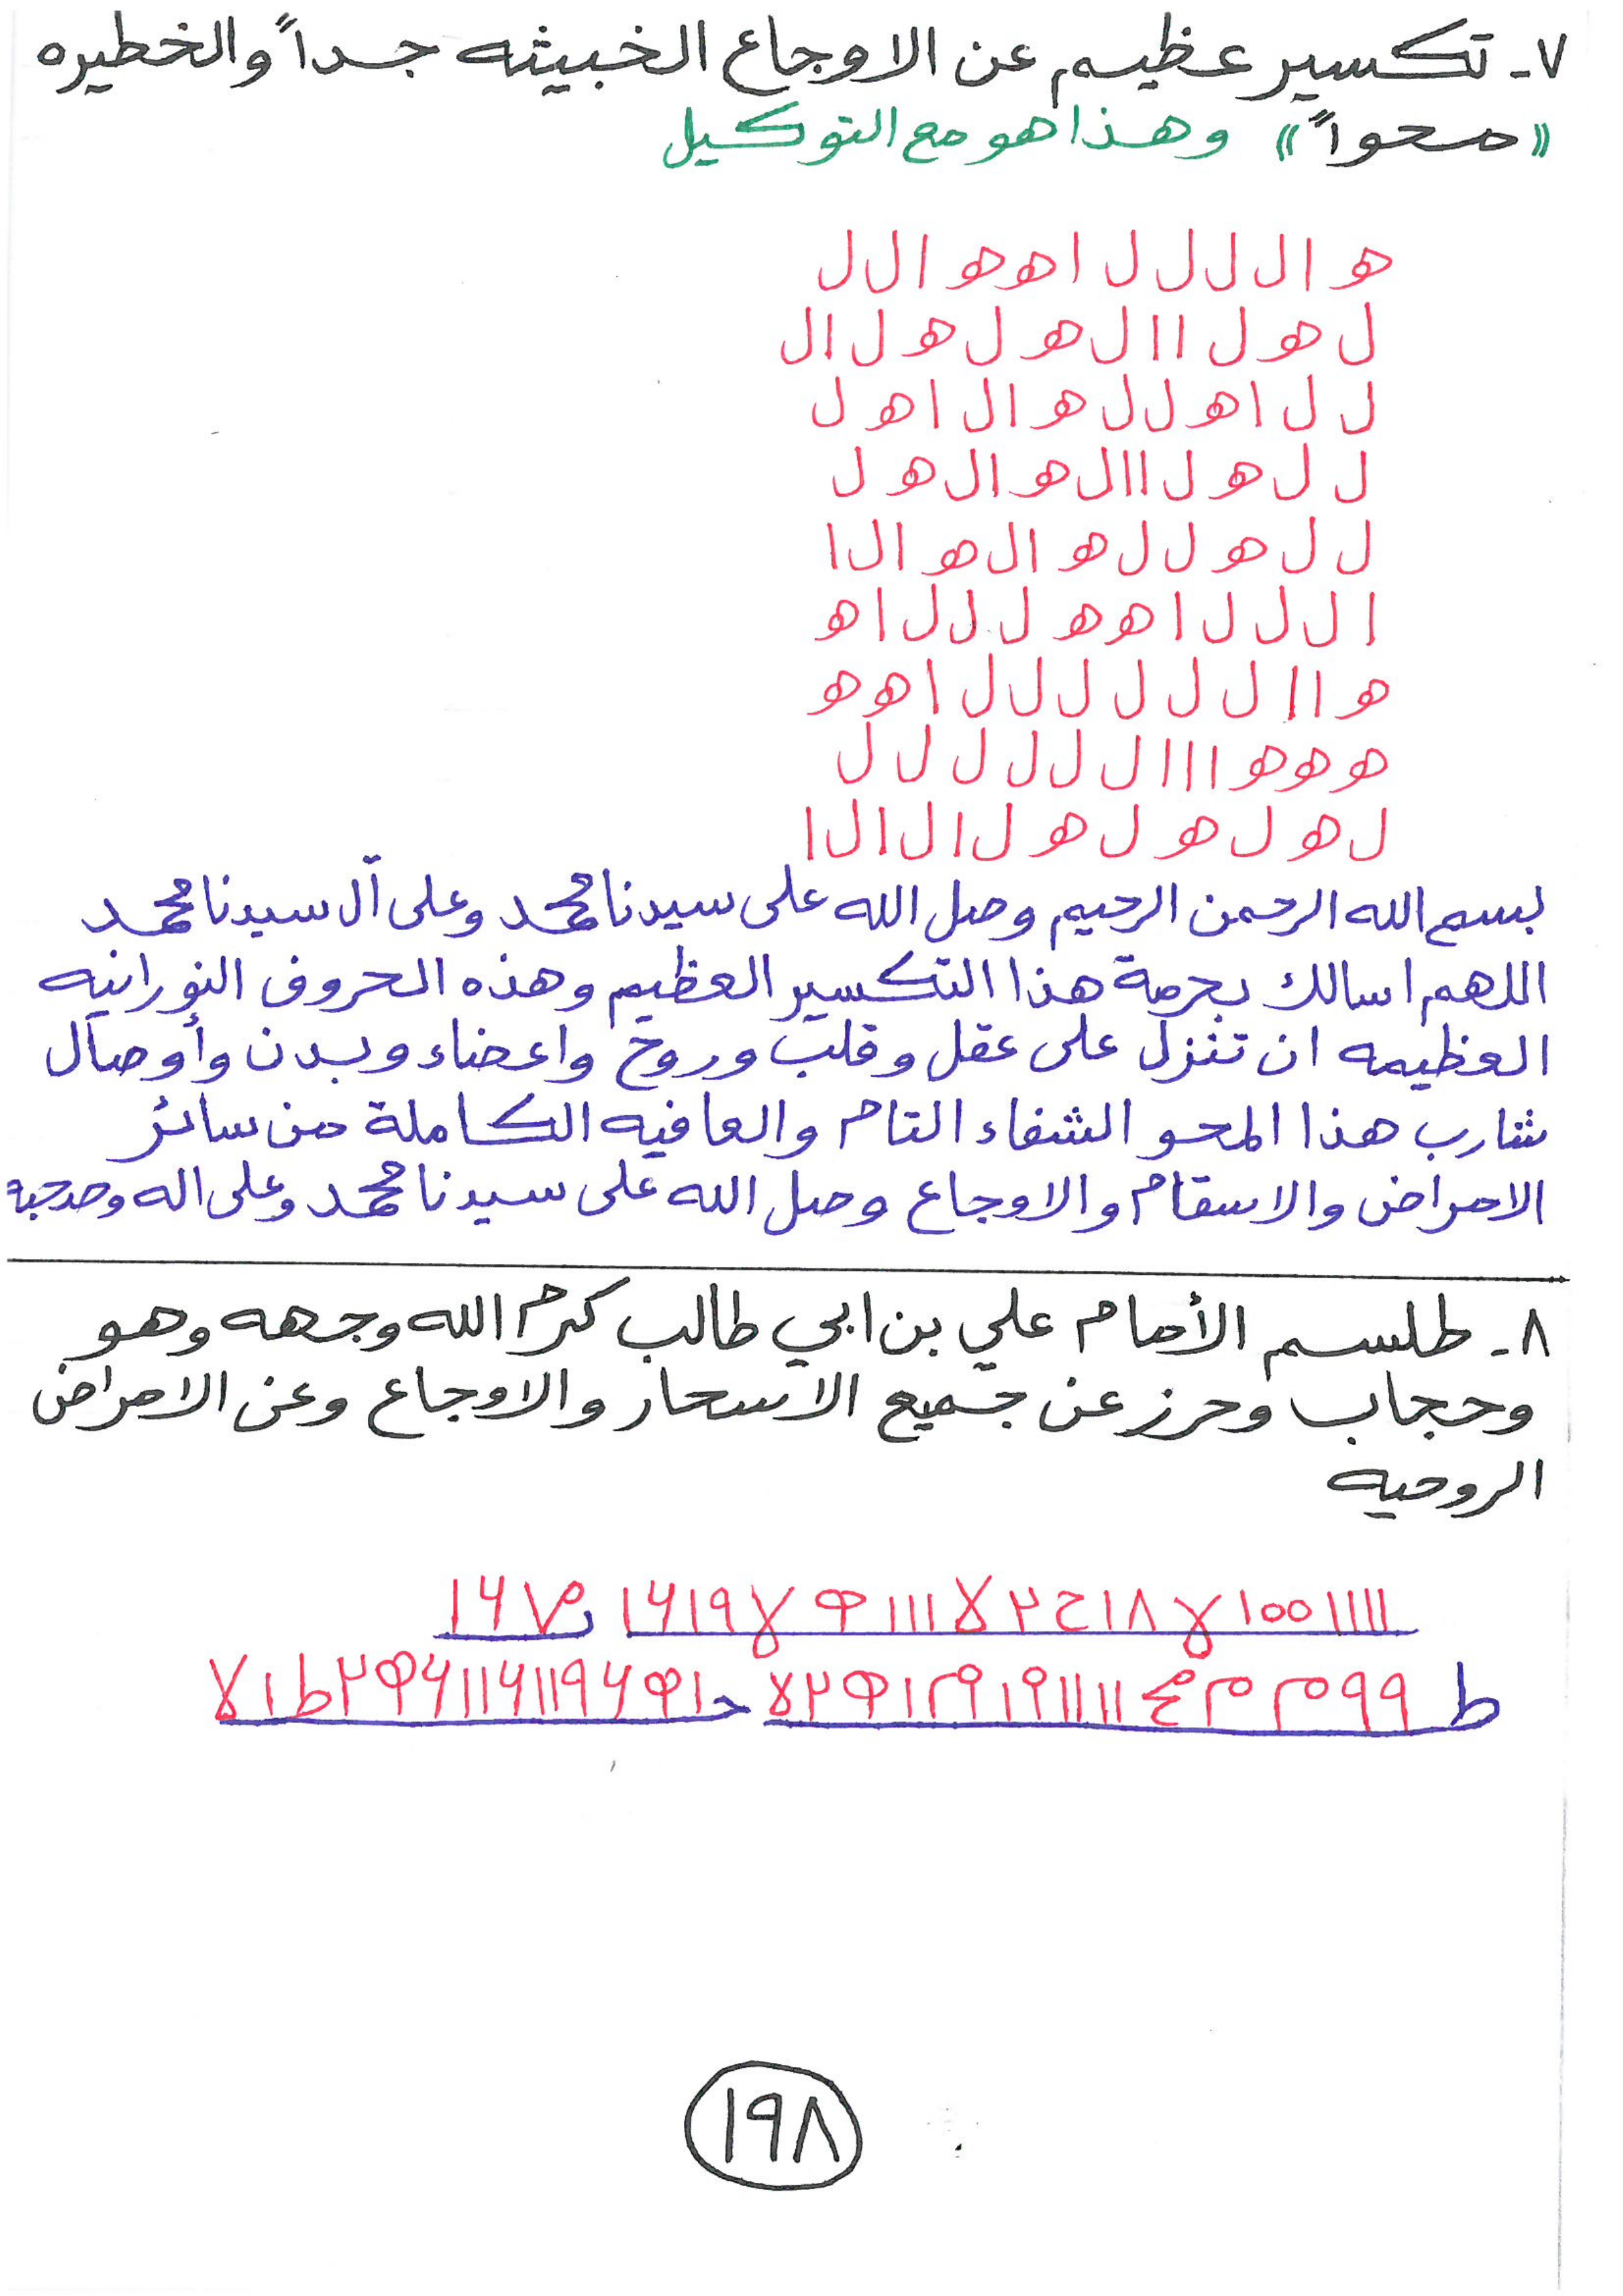 ٧- تكسير عظيم عن الاوجاع الخبيثه جداً والخطيره
«محواً» وهذا هو مع التوكيل
ه ا ل ل ل ل ا ه ه ا ل ل
ل ه ل ا ا ل ه ل ه ل ا ل
ل ل ا ه ل ل ه ا ل ا ه ل
ل ل ه ل ا ا ل ه ا ل ه ل
ل ل ه ل ل ه ا ل ه ا ل ا
ا ل ل ل ا ه ه ل ل ل ا ه
ه ا ا ل ل ل ل ل ل ا ه ه
ه ه ه ا ا ا ل ل ل ل ل ل
ل ه ل ه ل ه ل ا ل ا ل ا
بسم الله الرحمن الرحيم وصل الله على سيدنا محمد وعلى آل سيدنا محمد
اللهم اسالك بحرمة هذا التكسير العظيم وهذه الحروف النورانيه
العظيمه ان تنزل على عقل وقلب وروح واعضاء وبدن وأوصال
شارب هذا المحو الشفاء التام والعافيه الكاملة من سائر
الامراض والاسقام والاوجاع وصل الله على سيدنا محمد وعلى اله وصحبه
٨- طلسم الأمام علي بن ابي طالب كرم الله وجهه وهو
وحجاب وحرز عن جميع الاسحار والاوجاع وعن الامراض
الروحيه
١٩٨